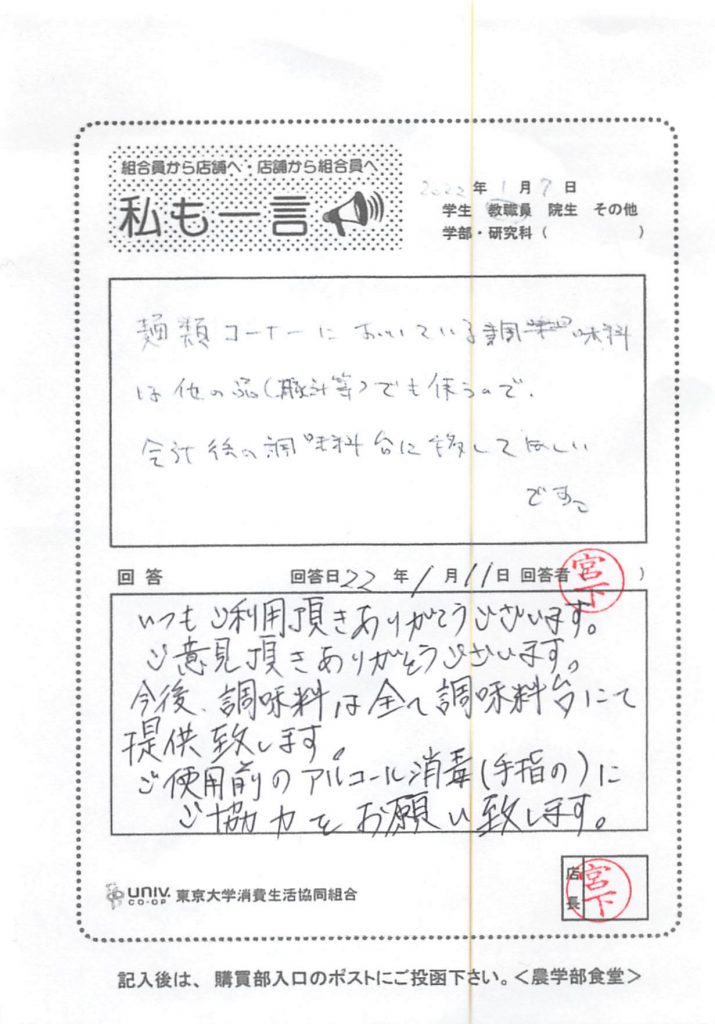 組合員から店舗へ・店舗から組合員へ
私も一言
2022年1月7日
学生 教職員 院生 その他
学部・研究科( )
麺類コーナーにおいている調味料
は他の品(豚汁等)でも使うので、
会計後の調味料台に移してほしい
です。
回答 回答日22年1月11日 回答者 宮下 )
いつもご利用頂きありがとうございます。
ご意見頂きありがとうございます。
今後、調味料は全て調味料台にて
提供致します。
ご使用前のアルコール消毒(手指の)に
ご協力をお願い致します。
UNIV. CO-OP 東京大学消費生活協同組合
店長 宮下
記入後は、購買部入口のポストにご投函下さい。<農学部食堂>